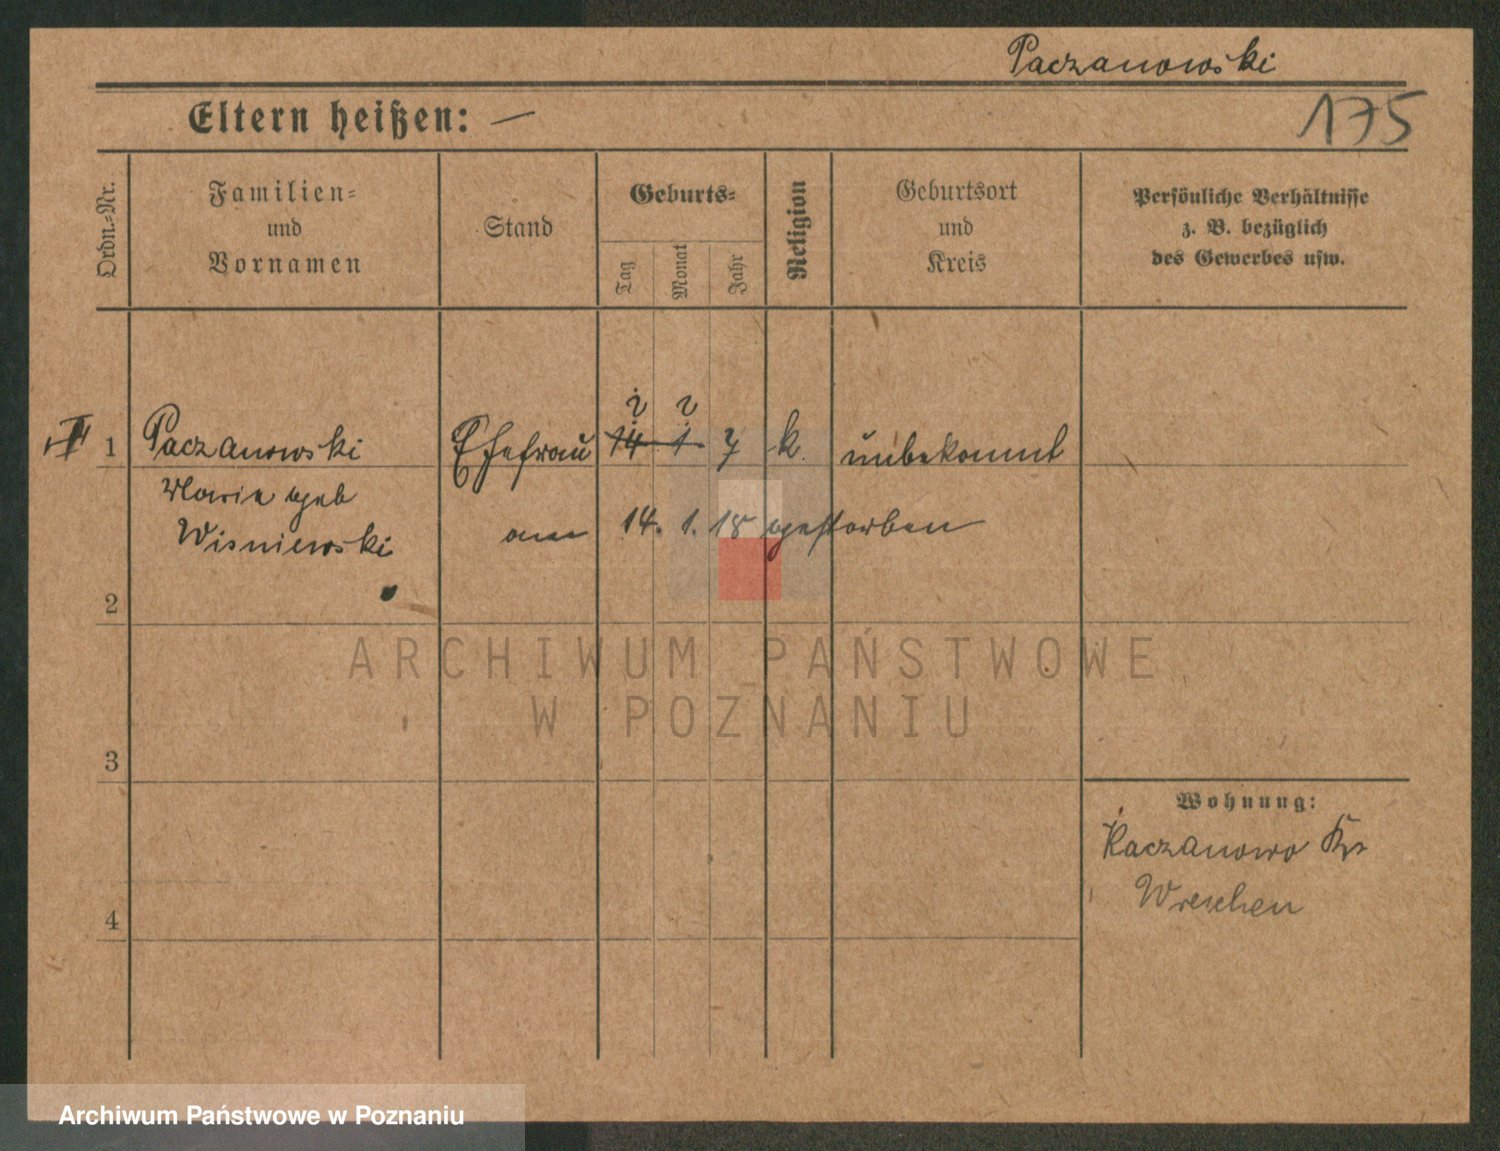 Paczanowski
175
Eltern heißen: —
Ordn.-Nr.
Familien-
und
Vornamen
Stand
Geburts-
Tag
Monat
Jahr
Religion
Geburtsort
und
Kreis
Persönliche Verhältnisse
z. B. bezüglich
des Gewerbes usw.
? ?
1 Paczanowski Ehefrau 14 1 ? k. unbekannt
Marie geb
Wisniewski
am 14. 1. 18 gestorben
2
3
4
Wohnung:
Kaczanowo Krs
Wreschen
ARCHIWUM PAŃSTWOWE
W POZNANIU
Archiwum Państwowe w Poznaniu